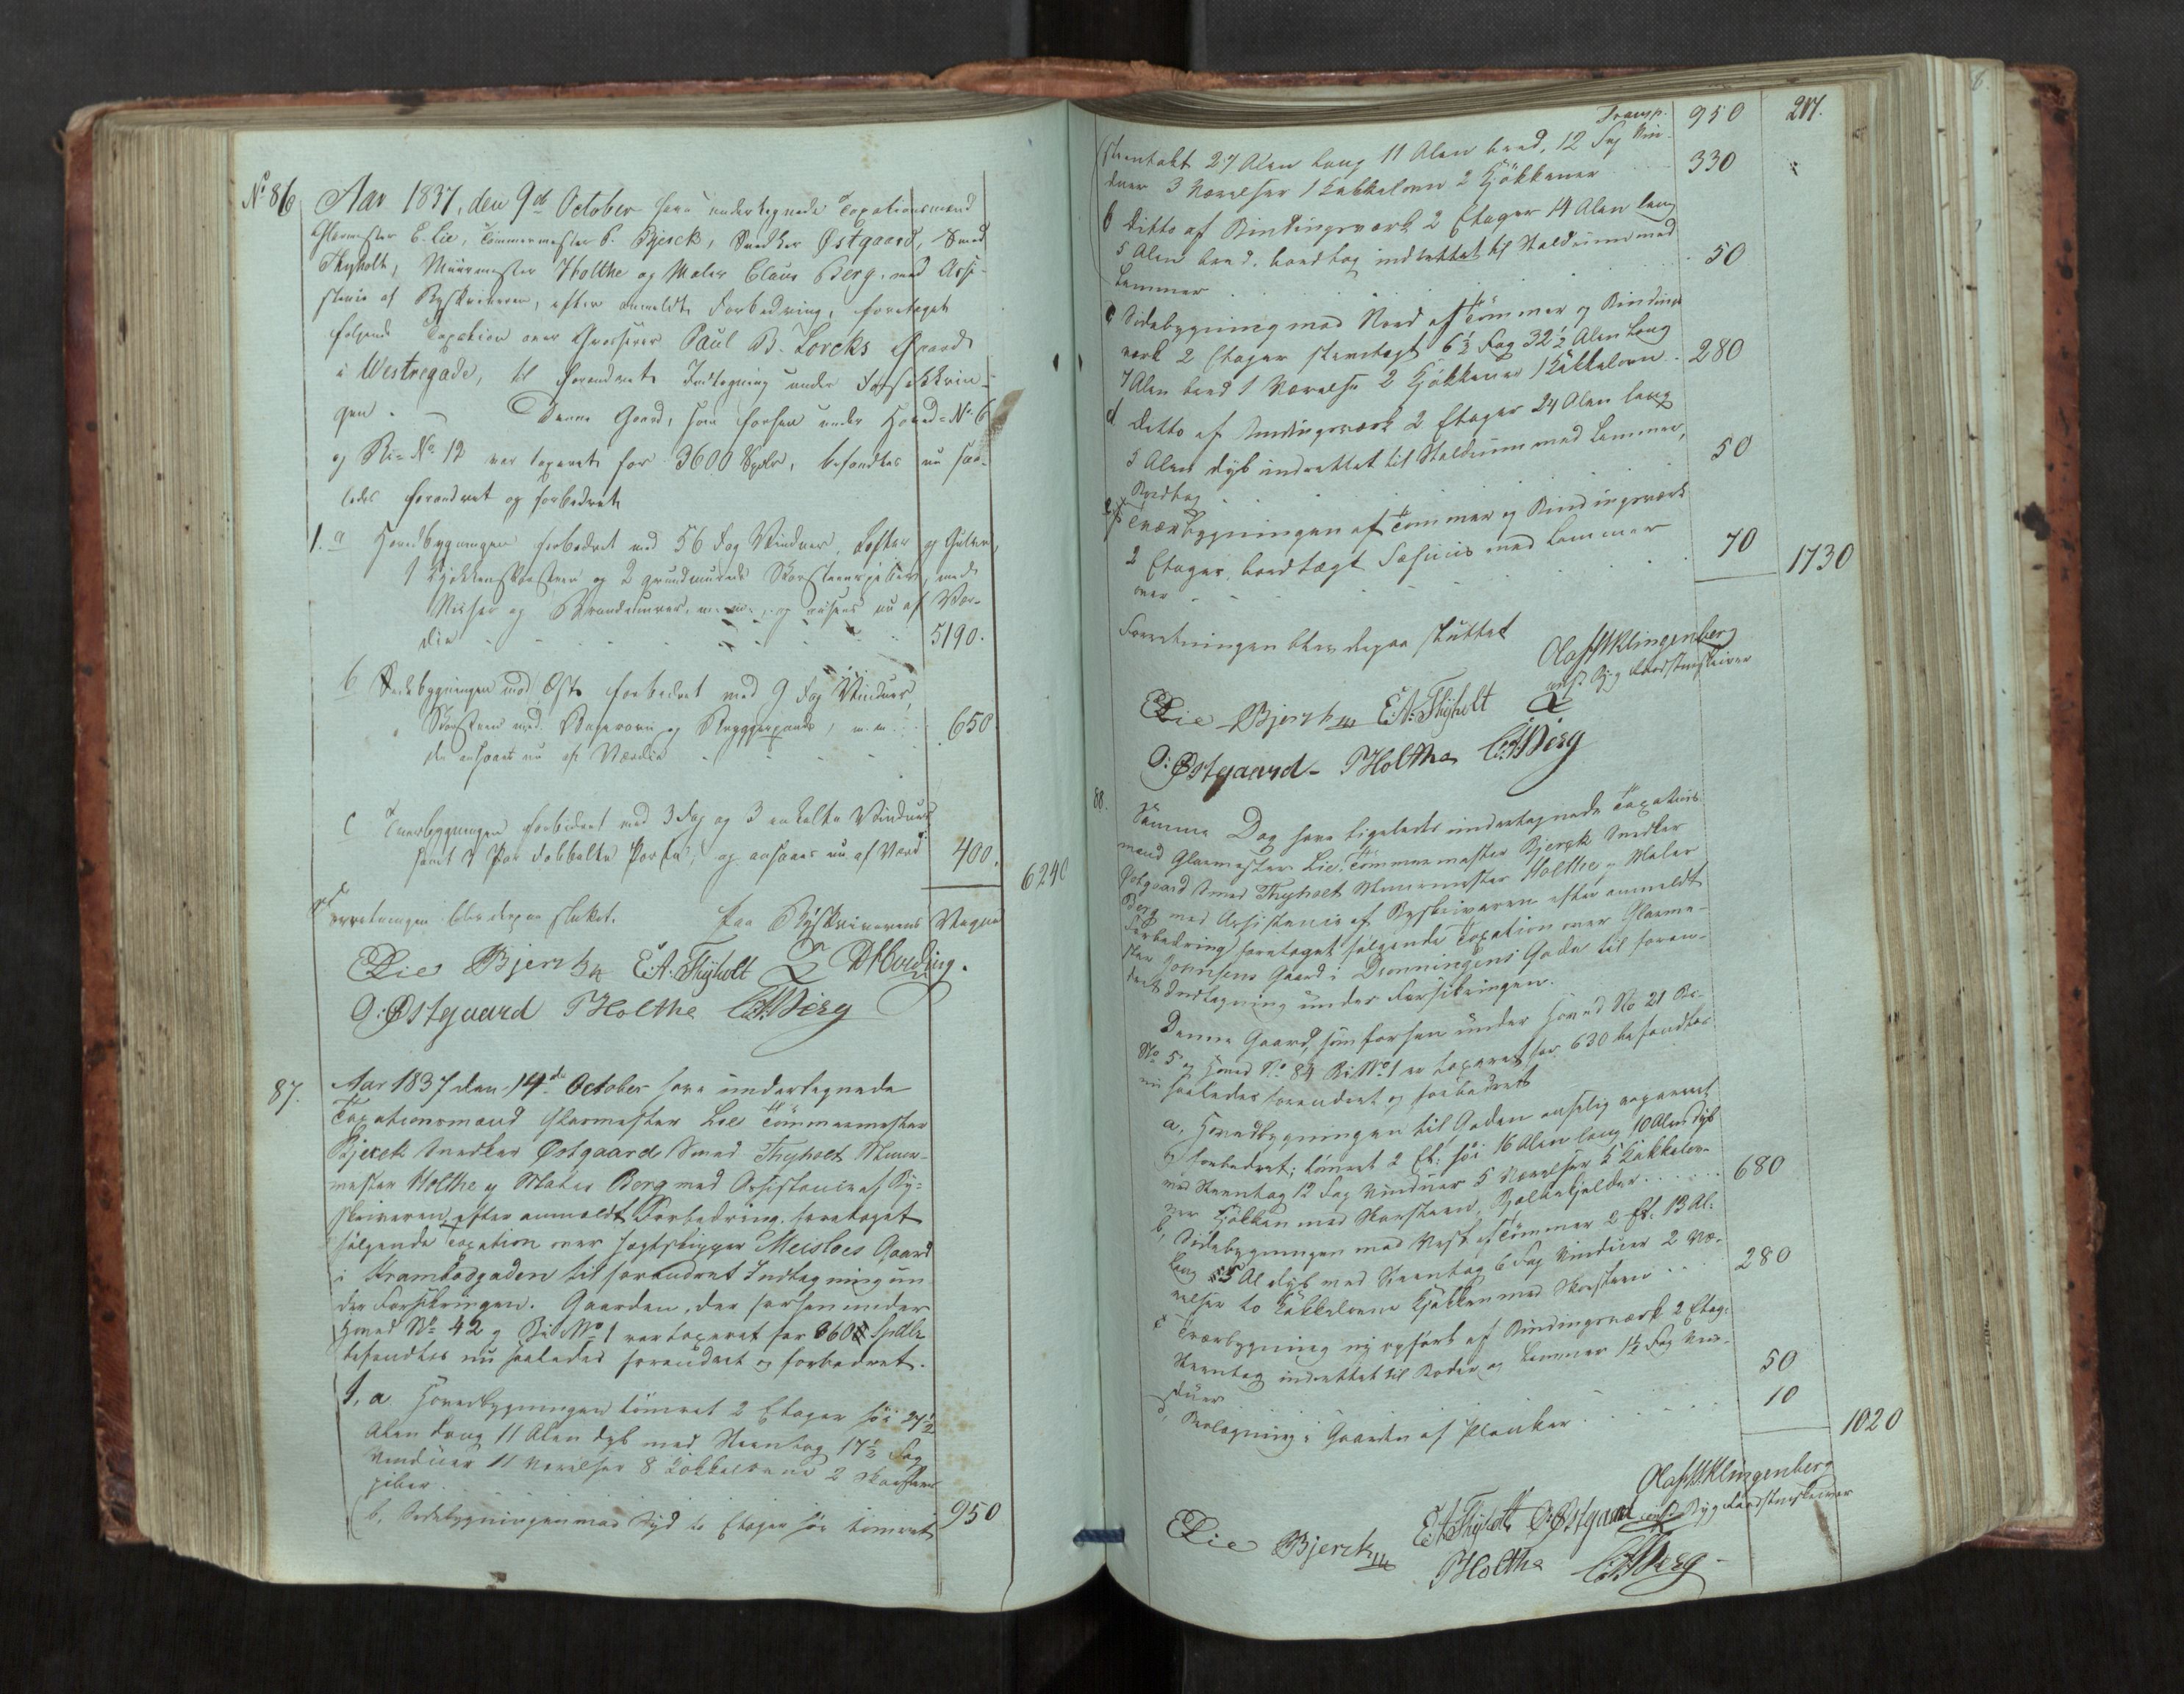 No 86 Aar 1837, den 9de October have undertegnede Taxationsmænd
Glarmester C. Lie, Tömmermester P. Bjerck, Snedker Østgaard, Smed
Thyholt, Muurmester Holthe og Maler Claus Berg, med Assi-
stence af Byskriveren, efter anmeldte Forbedring, foretaget
følgende Taxation over Grosserer Paul B. Lorcks Gaard
i Westregade, til forandret Indtegning under Forsikkrin-
gen. — Denne Gaard, som forhen under Hoved-No. 6
og Bi-No 12 var taxeret for 3600 Spdlr, befandtes nu saa-
ledes forandret og forbedret
1. a Hovedbygningen forbedret med 56 Fag Vinduer, Lofter og Gulve,
1 Kjøkkenskorsteen og 2 grundmurede Skorsteenspiber, med
og Brandmure, m.m., og ansees nu af Vær-
die 5190.
b Sidebygningen mod Øst forbedret med 9 Fag Vinduer,
Skorsteen med Bagerovn og Bryggerpande, m.m.
den ansaaes nu af Værdie 650.
c Tverbygningen forbedret med 3 Fag og 3 enkelte Vinduer
samt 1 Par dobbelte Porte, og ansaaes nu af Værd 400.
6240
Forretningen blev derpaa sluttet. Paa Byskriverens Vegne
CLie Bjerck E.A. Thyholt D Harding.
O: Østgaard PHolthe C.A.Berg
87. Aar 1837 den 14de October have undertegnede
Taxationsmænd Glarmester Lie Tömmermester
Bjerck Snedker Østgaard Smed Thyholt Muur-
mester Holthe og Maler Berg med Assistence af By-
skriveren, efter anmeldt Forbedring, foretaget
følgende Taxation over Jagtskipper Meisloes Gaard
i Krambodgaden til forandret Indtegning un-
der Forsikringen. Gaarden, der forhen under
Hoved No 42 og Bi No 1 var taxeret for Spdlr
befandtes nu saaledes forandret og forbedret.
1, a Hovedbygningen tömret 2 Etager höi 27½
Alen lang 11 Alen dyb med Steentag 17½ Fag
Vinduer 11 Værelser 8 Kakkelovne 2 Skorsteens
piber 950
b, Sidebygningen mod Syd to Etager höi tömret
Transp. 950 217.
steentakt 27 Alen lang 11 Alen bred, 12 Fag Vin-
duer 3 Værelser 1 Kakkelovn 2 Kjökkener 330
b Ditto af Bindingsværk 2 Etager 14 Alen lang
5 Alen bred, bordtag indrettet til Staldrum med
Lemmer 50
c Sidebygning mod Nord af Tömmer og Bindings
værk 2 Etager steentagt 6½ Fag 32½ Alen lang
7 Alen bred 1 Værelse 2 Kjökkener 1 Kakkelovn 280
d Ditto af Bindingsværk 2 Etager 24 Alen lang
5 Alen dyb indrettet til Staldrum med Lemmer,
Bordtag 50
e Tværbygningen af Tömmer og Bindingsværk
2 Etager, bordtagt Fæhuus med Lemmer
over 70 1730
Forretningen blev derpaa sluttet
Olaf H Klingenberg
const. By og Raadstueskriver
CLie Bjerck E.A. Thyholt
O: Østgaard - PHolthe C.A.Berg
88. Samme Dag have ligeledes undertegnede Taxations
mænd Glarmester Lie, Tömmermester Bjerck Snedker
Østgaard Smed Thyholt Muurmester Holthe og Maler
Berg med Assistence af Byskriveren efter anmeldt
Forbedring foretaget følgende Taxation over Glarme-
ster Johnsens Gaard i Dronningens Gade til foran-
dret Indtegning under Forsikringen.
Denne Gaard, som forhen under Hoved No 21 Bi-
No 5 og Hoved No 84 Bi No 1 er taxeret for 630 befandtes
nu saaledes forandret og forbedret
a, Hovedbygningen til Gaden anselig repareret
og forbedret; tömret 2 Et: höi 16 Alen lang 10 Alen dyb
med Steentag 12 Fag Vinduer 5 Værelser 5 Kakkelov-
ner Kjökken med Skorsteen, Bjelkekjelder 680
b, Sidebygningen mod Vest af Tömmer 2 Et: 13 Al:
lang 5 Al dyb med Steentag 6 Fag Vinduer 2 Væ-
relser to Kakkelovne Kjökken med Skorsteen 280
c Tværbygning ny opfört af Bindingsværk 2 Etag:
Steentag indrettet til Boder og Lemmer 1½ Fag Vin-
duer 50
d, Brolægning i Gaarden af Planker 10
1020
Olaf H Klingenberg
const. By og Raadstueskriver
CLie Bjerck E.A. Thyholt O: Østgaard
PHolthe C.A.Berg